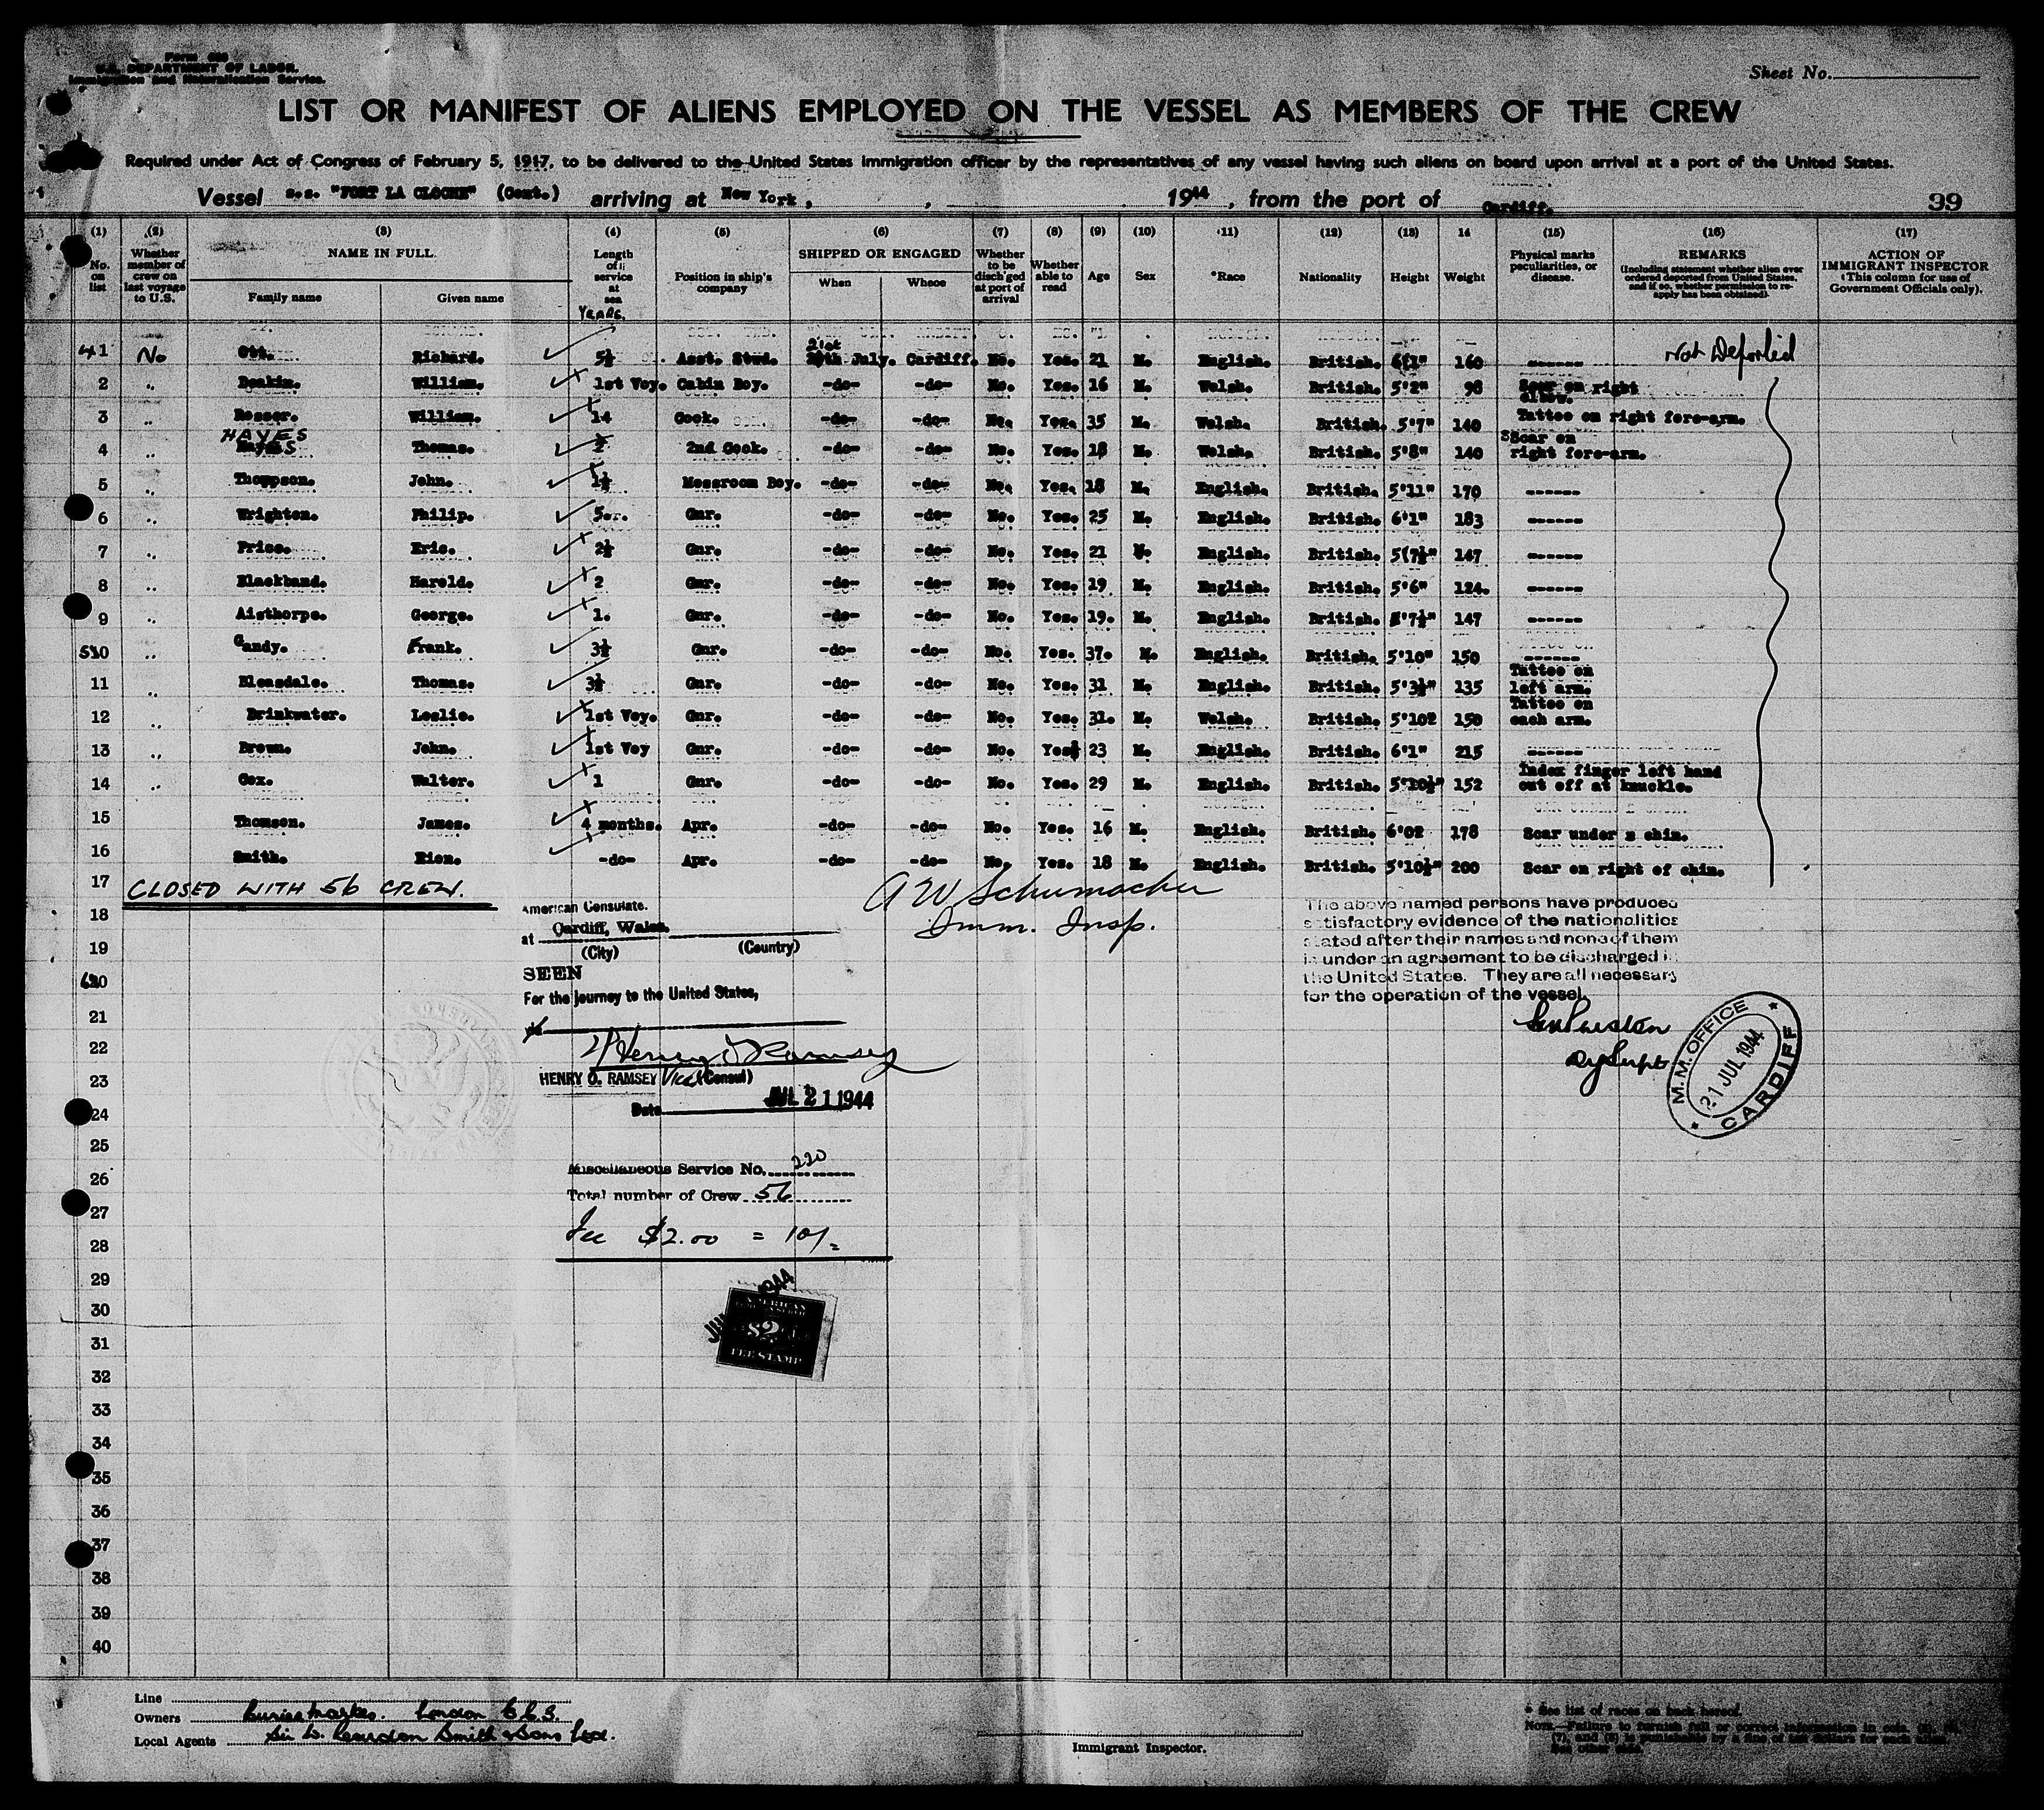 Form 680
U.S. DEPARTMENT OF LABOR.
Immigration and Naturalization Service.
Sheet No.
LIST OR MANIFEST OF ALIENS EMPLOYED ON THE VESSEL AS MEMBERS OF THE CREW
Required under Act of Congress of February 5, 1917, to be delivered to the United States immigration officer by the representatives of any vessel having such aliens on board upon arrival at a port of the United States.
Vessel s.s. "FORT LA CLOCHE" (Cont.) arriving at New York, , 1944, from the port of Cardiff. 39
(1) (2) (3) (4) (5) (6) (7) (8) (9) (10) (11) (12) (13) 14 (15) (16) (17)
No. on list
Whether member of crew on last voyage to U.S.
NAME IN FULL
Family name Given name
Length of service at sea
Years.
Position in ship's company
SHIPPED OR ENGAGED
When Whece
Whether to be disch'ged at port of arrival
Whether able to read
Age Sex *Race Nationality Height Weight
Physical marks peculiarities, or disease.
REMARKS
(Including statement whether alien ever ordered deported from United States, and if so, whether permission to re-apply has been obtained).
ACTION OF IMMIGRANT INSPECTOR
(This column for use of Government Officials only).
41 No Ott. Richard. 5½ Asst. Stwd. 21st July. Cardiff. No. Yes. 21 M. English. British. 6'1" 160 ------ Not Deported
2 " Deakin. William. 1st Voy. Cabin Boy. -do- -do- No. Yes. 16 M. Welsh. British. 5'2" 98 Scar on right elbow.
3 " Rosser. William. 14 Cook. -do- -do- No. Yes. 35 M. Welsh. British. 5'7" 140 Tattoo on right fore-arm.
4 " HAYES Thomas. 2nd Cook. -do- -do- No. Yes. 18 M. Welsh. British. 5'8" 140 Scar on right fore-arm.
5 " Thompson. John. 1½ Messroom Boy. -do- -do- No. Yes. 18 M. English. British. 5'11" 170 ------
6 " Wrighton. Philip. 5 Gnr. -do- -do- No. Yes. 25 M. English. British. 6'1" 183 ------
7 " Price. Eric. 2½ Gnr. -do- -do- No. Yes. 21 M. English. British. 5(7½" 147 ------
8 " Blackband. Harold. 2 Gnr. -do- -do- No. Yes. 19 M. English. British. 5'6" 124. ------
9 " Aisthorpe. George. 1. Gnr. -do- -do- No. Yes. 19. M. English. British. 5'7½" 147 ------
50 " Gandy. Frank. 3½ Gnr. -do- -do- No. Yes. 37. M. English. British. 5'10" 150 ------
11 " Bleasdale. Thomas. 3½ Gnr. -do- -do- No. Yes. 31 M. English. British. 5'3½" 135 Tattoo on left arm.
12 " Brinkwater. Leslie. 1st Voy. Gnr. -do- -do- No. Yes. 31. M. Welsh. British. 5'102 150 Tattoo on each arm.
13 " Brown. John. 1st Voy Gnr. -do- -do- No. Yes 23 M. English. British. 6'1" 215 ------
14 " Cox. Walter. 1 Gnr. -do- -do- No. Yes. 29 M. English. British. 5'10½" 152 Index finger left hand cut off at knuckle.
15 Thomson. James. 4 months. Apr. -do- -do- No. Yes. 16 M. English. British. 6'02 178 Scar under x chin.
16 Smith. Rien. -do- Apr. -do- -do- No. Yes. 18 M. English. British. 5'10½" 200 Scar on right of chin.
17 CLOSED WITH 56 CREW.
A W Schumacher
Imm. Insp.
18
19
60
21
22
23
24
25
26
27
28
29
30
31
32
33
34
35
36
37
38
39
40
American Consulate.
at Cardiff, Wales.
(City) (Country)
SEEN
For the journey to the United States,
Henry O Ramsey
HENRY O. RAMSEY Vice (Consul)
Date JUL 21 1944
Miscellaneous Service No. 220
Total number of Crew 56
Fee $2.00 = 10/-
1944
AMERICAN
$2
FEE STAMP
The above named persons have produced
satisfactory evidence of the nationalities
stated after their names and none of them
is under an agreement to be discharged in
the United States. They are all necessary
for the operation of the vessel.
Dy Supt
M.M. OFFICE
21 JUL 1944
CARDIFF
Line
Owners London E.C.3.
Local Agents Sir W. Reardon Smith & Sons Ltd.
Immigrant Inspector.
* See list of races on back hereof.
NOTE.—Failure to furnish full or correct information in cols.
(7), and (8) is punishable by a fine of ten dollars for each alien.
See other side.